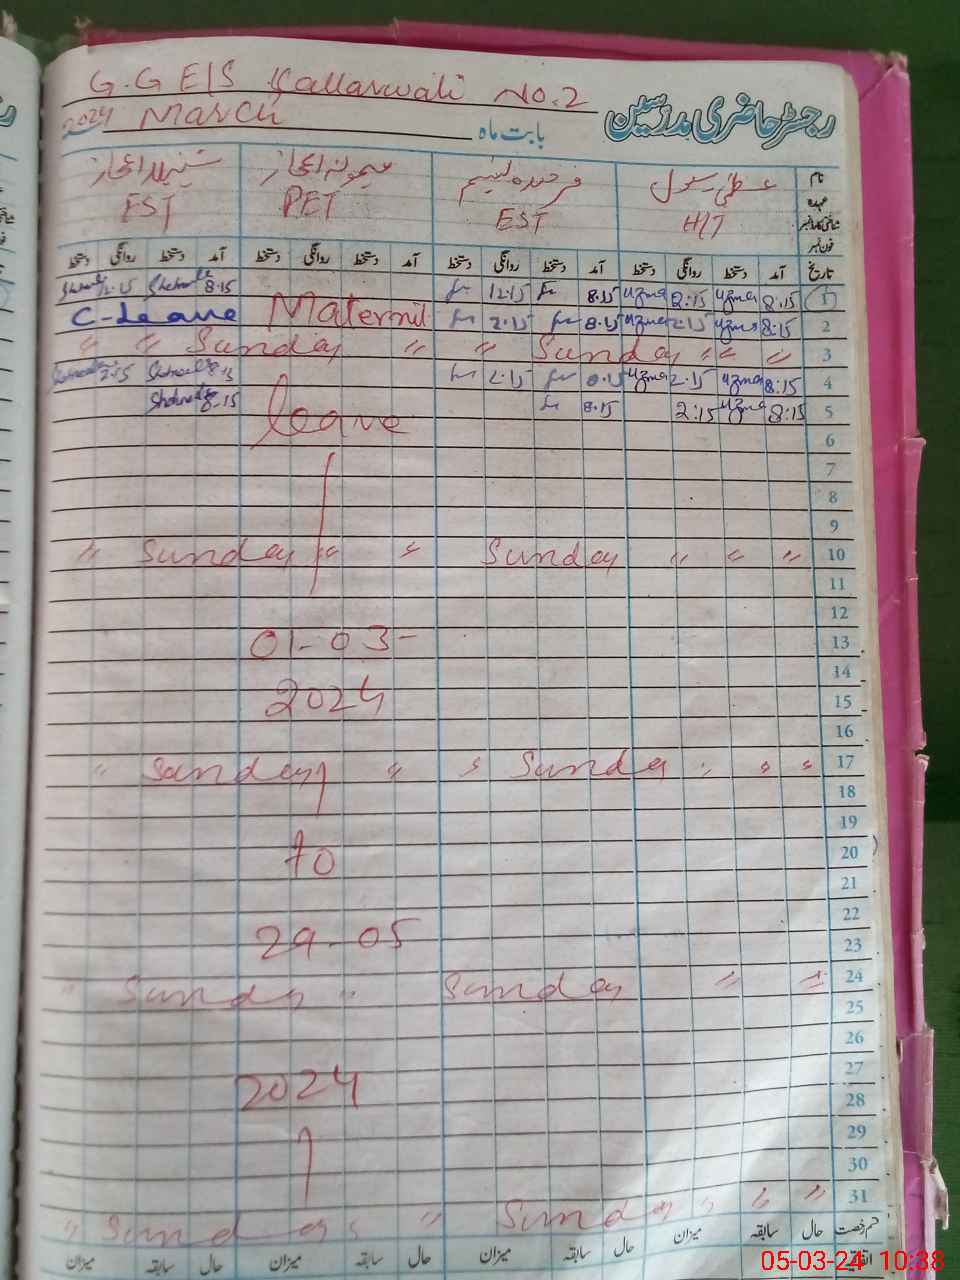 G.GE/S Kallarwali No.2
رجسٹر حاضری مدرسین
بابت ماہ March 2024
نام عظمیٰ رسول فرخندہ نسیم میمونہ اعجاز شنیلہ اعجاز
عہدہ H/T EST PET EST
شناختی کارڈ نمبر
فون نمبر
تاریخ آمد دستخط روانگی دستخط آمد دستخط روانگی دستخط آمد دستخط روانگی دستخط آمد دستخط روانگی دستخط
1 8:15 uzma 2:15 uzma 8.15 12:15 8.15 12.15
2 8:15 uzma 2:15 uzma 8.15 2.15 Maternit C-Leave
3 " " " Sunday " " Sunday " "
4 8:15 uzma 2.15 uzma 8.15 2.15 8.15 2:15
5 8:15 uzma 2:15 8.15 leave 8.15
6
7
8
9
10 " " " Sunday " " Sunday "
11
12
13 01-03-
14
15 2024
16
17 " " " Sunday " " Sunday "
18
19
20 90
21
22
23 29-05
24 " " Sunday " Sunday "
25
26
27
28 2024
29
30
31 " " " Sunday " Sunday "
قسم رخصت حال سابقہ میزان حال سابقہ میزان حال سابقہ میزان حال سابقہ میزان
اتفاقیہ
05-03-24 10:38